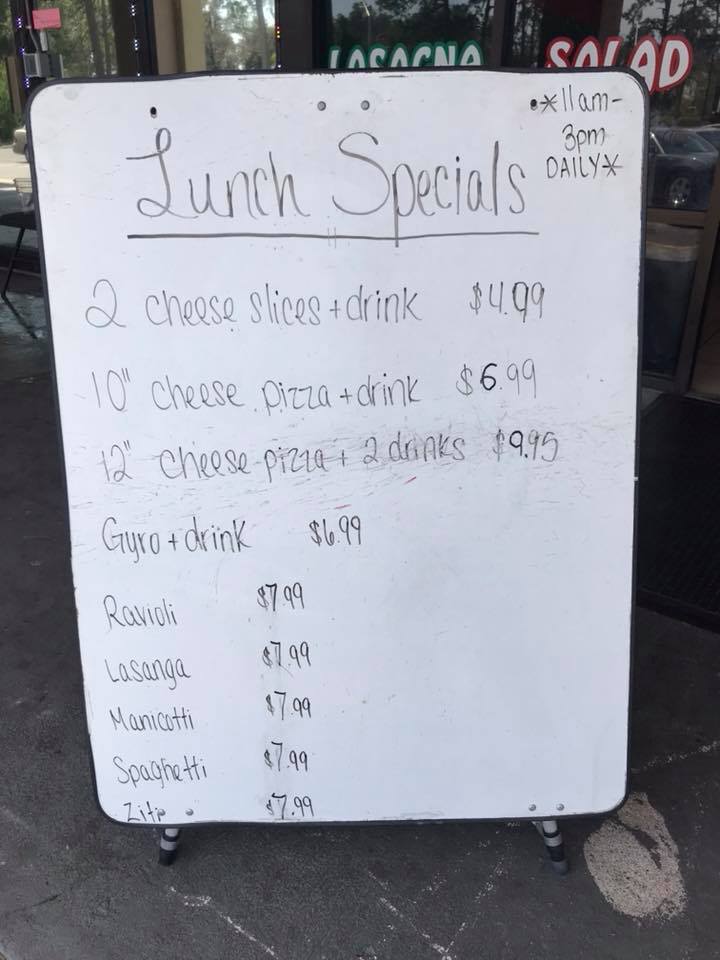 LASAGNA
SALAD
*11am-
3pm
DAILY*
Lunch Specials
2 cheese slices + drink $4.99
10" cheese pizza + drink $6.99
12" cheese pizza + 2 drinks $9.95
Gyro + drink $6.99
Ravioli $7.99
Lasanga $7.99
Manicotti $7.99
Spaghetti $7.99
Ziti $7.99